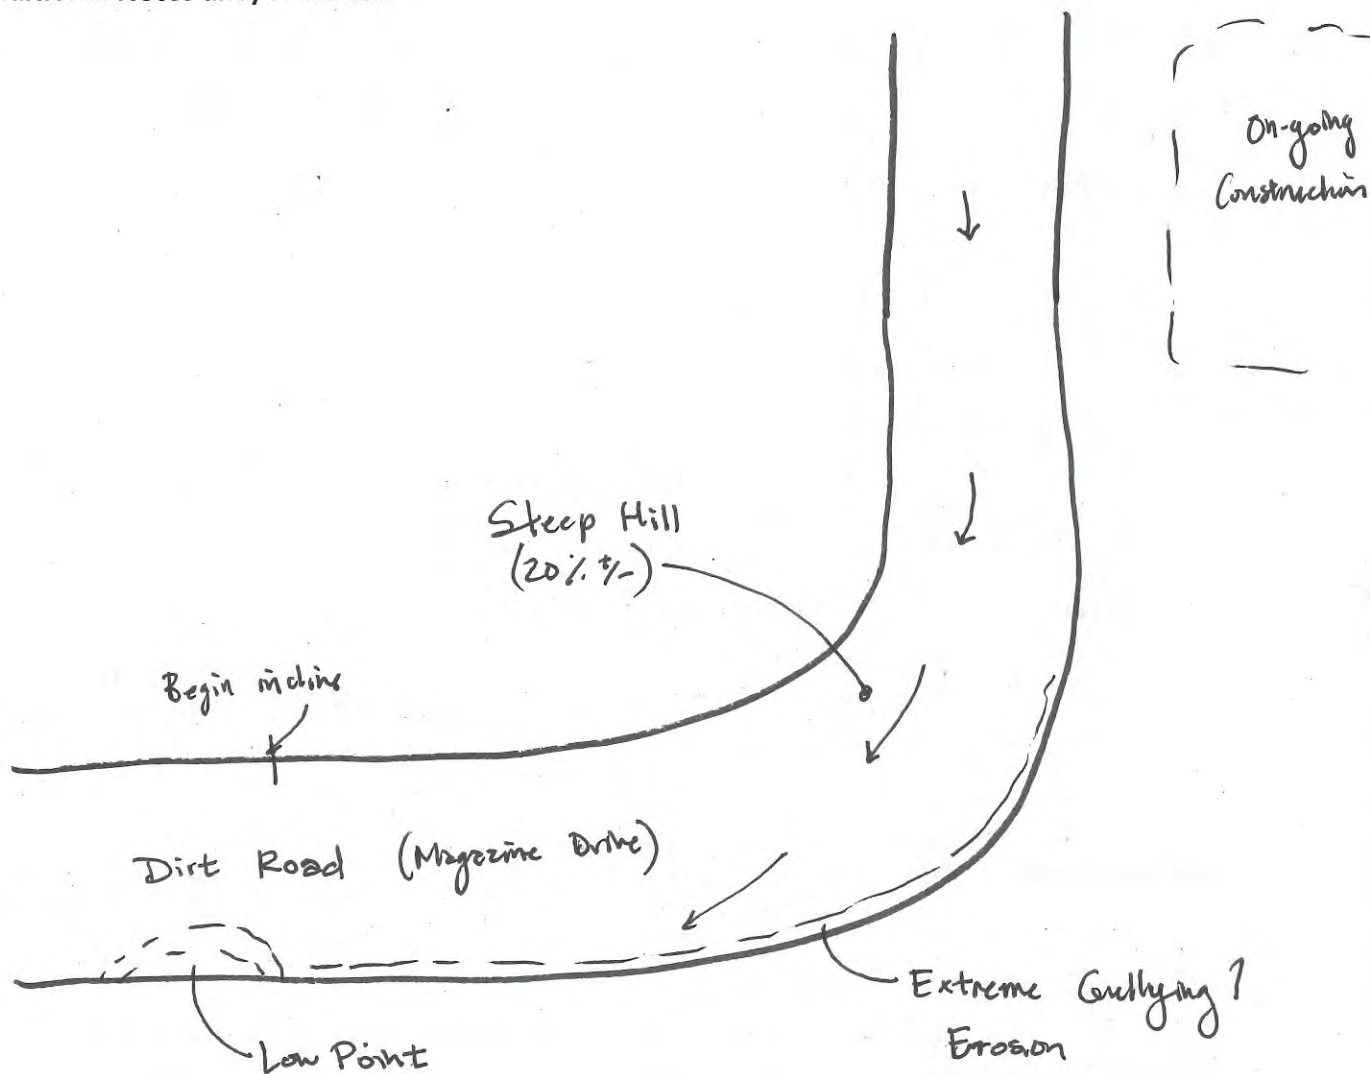 On-going
Construction
Steep Hill
(20% +/-)
Begin incline
Dirt Road (Magazine Drive)
Extreme Gullying &
Erosion
Low Point